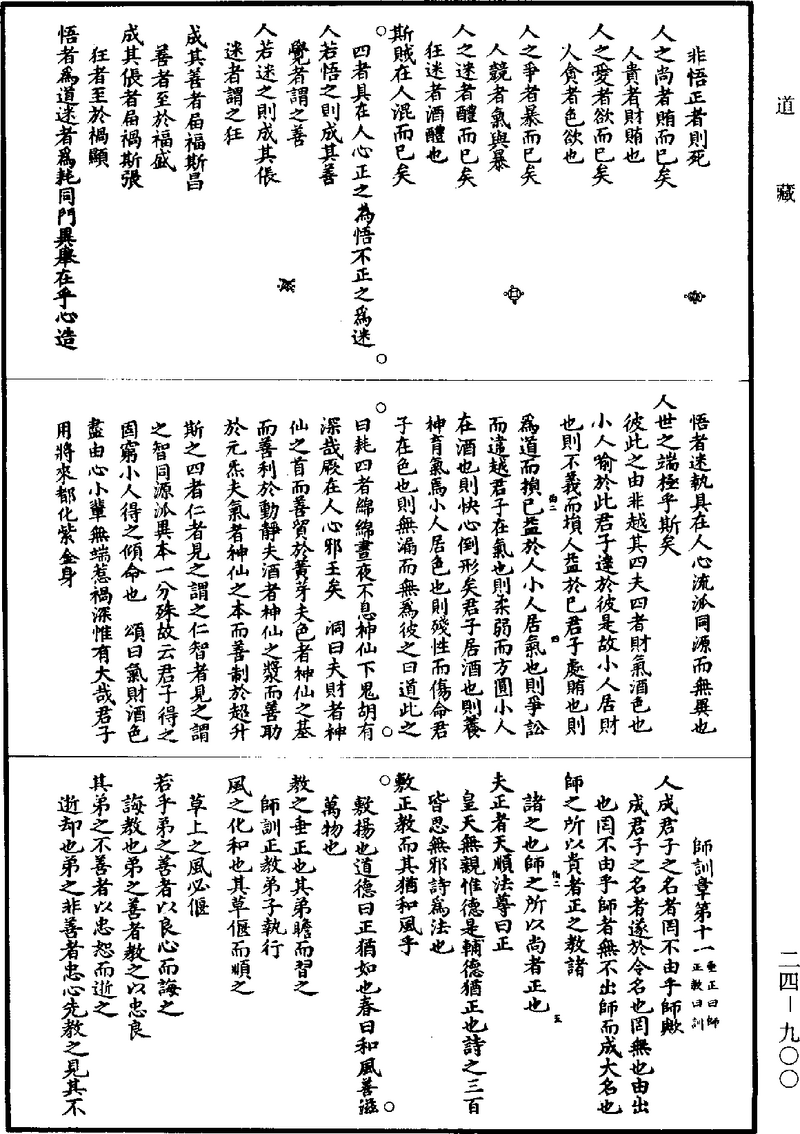 道藏
非悟正者則死
人之尚者賄而已矣
人貴者財賄也
人之愛者欲而已矣
人貪者色欲也
人之爭者暴而已矣
人競者氣與暴
人之迷者醴而已矣
狂迷者酒醴也
斯賊在人混而已矣
四者具在人心正之為悟不正之為迷
人若悟之則成其善
覺者謂之善
人若迷之則成其倀
迷者謂之狂
成其善者屆福斯昌
善者至於福盛
成其倀者屆禍斯張
狂者至於禍顯
悟者為道迷者為耗同門異舉在乎心造
悟者迷執具在人心流派同源而無異也
人世之端極乎斯矣
彼此之由非越其四夫四者財氣酒色也
小人喻於此君子達於彼是故小人居財
也則不義而損人益於已君子處賄也則
為道而損已益於人小人居氣也則爭訟
而違越君子在氣也則柔弱而方圓小人
在酒也則快心倒形矣君子居酒也則養
神育氣為小人居色也則殘性而傷命君
子在色也則無漏而無為彼之曰道此之
曰耗四者綿綿晝夜不息神仙下鬼胡有
深哉厥在人心邪王矣 洞曰夫財者神
仙之首而善質於黃芽夫色者神仙之基
而善利於動靜夫酒者神仙之漿而善助
於元炁夫氣者神仙之本而善制於超升
斯之四者仁者見之謂之仁智者見之謂
之智同源派異本一分殊故云君子得之
固窮小人得之傾命也 頌曰氣財酒色
盡由心小輩無端惹禍深惟有大哉君子
用將來都化紫金身
師訓章第十一垂正曰師正教曰訓
人成君子之名者罔不由乎師歟
成君子之名者遂於令名也罔無也由出
也罔不由乎師者無不出師而成大名也
師之所以貴者正之教諸
諸之也師之所以尚者正也
夫正者天順法尊曰正
皇天無親惟德是輔德猶正也詩之三百
皆思無邪詩為法也
敷正教而其猶和風乎
敷揚也道德曰正猶如也春日和風善滋
萬物也
教之垂正也其弟瞻而習之
師訓正教弟子執行
風之化和也其草偃而順之
草上之風必偃
若乎弟之善者以良心而誨之
誨教也弟之善者教之以忠良
其弟之不善者以忠恕而逝之
逝却也弟之非善者忠心先教之見其不
二四—九〇〇